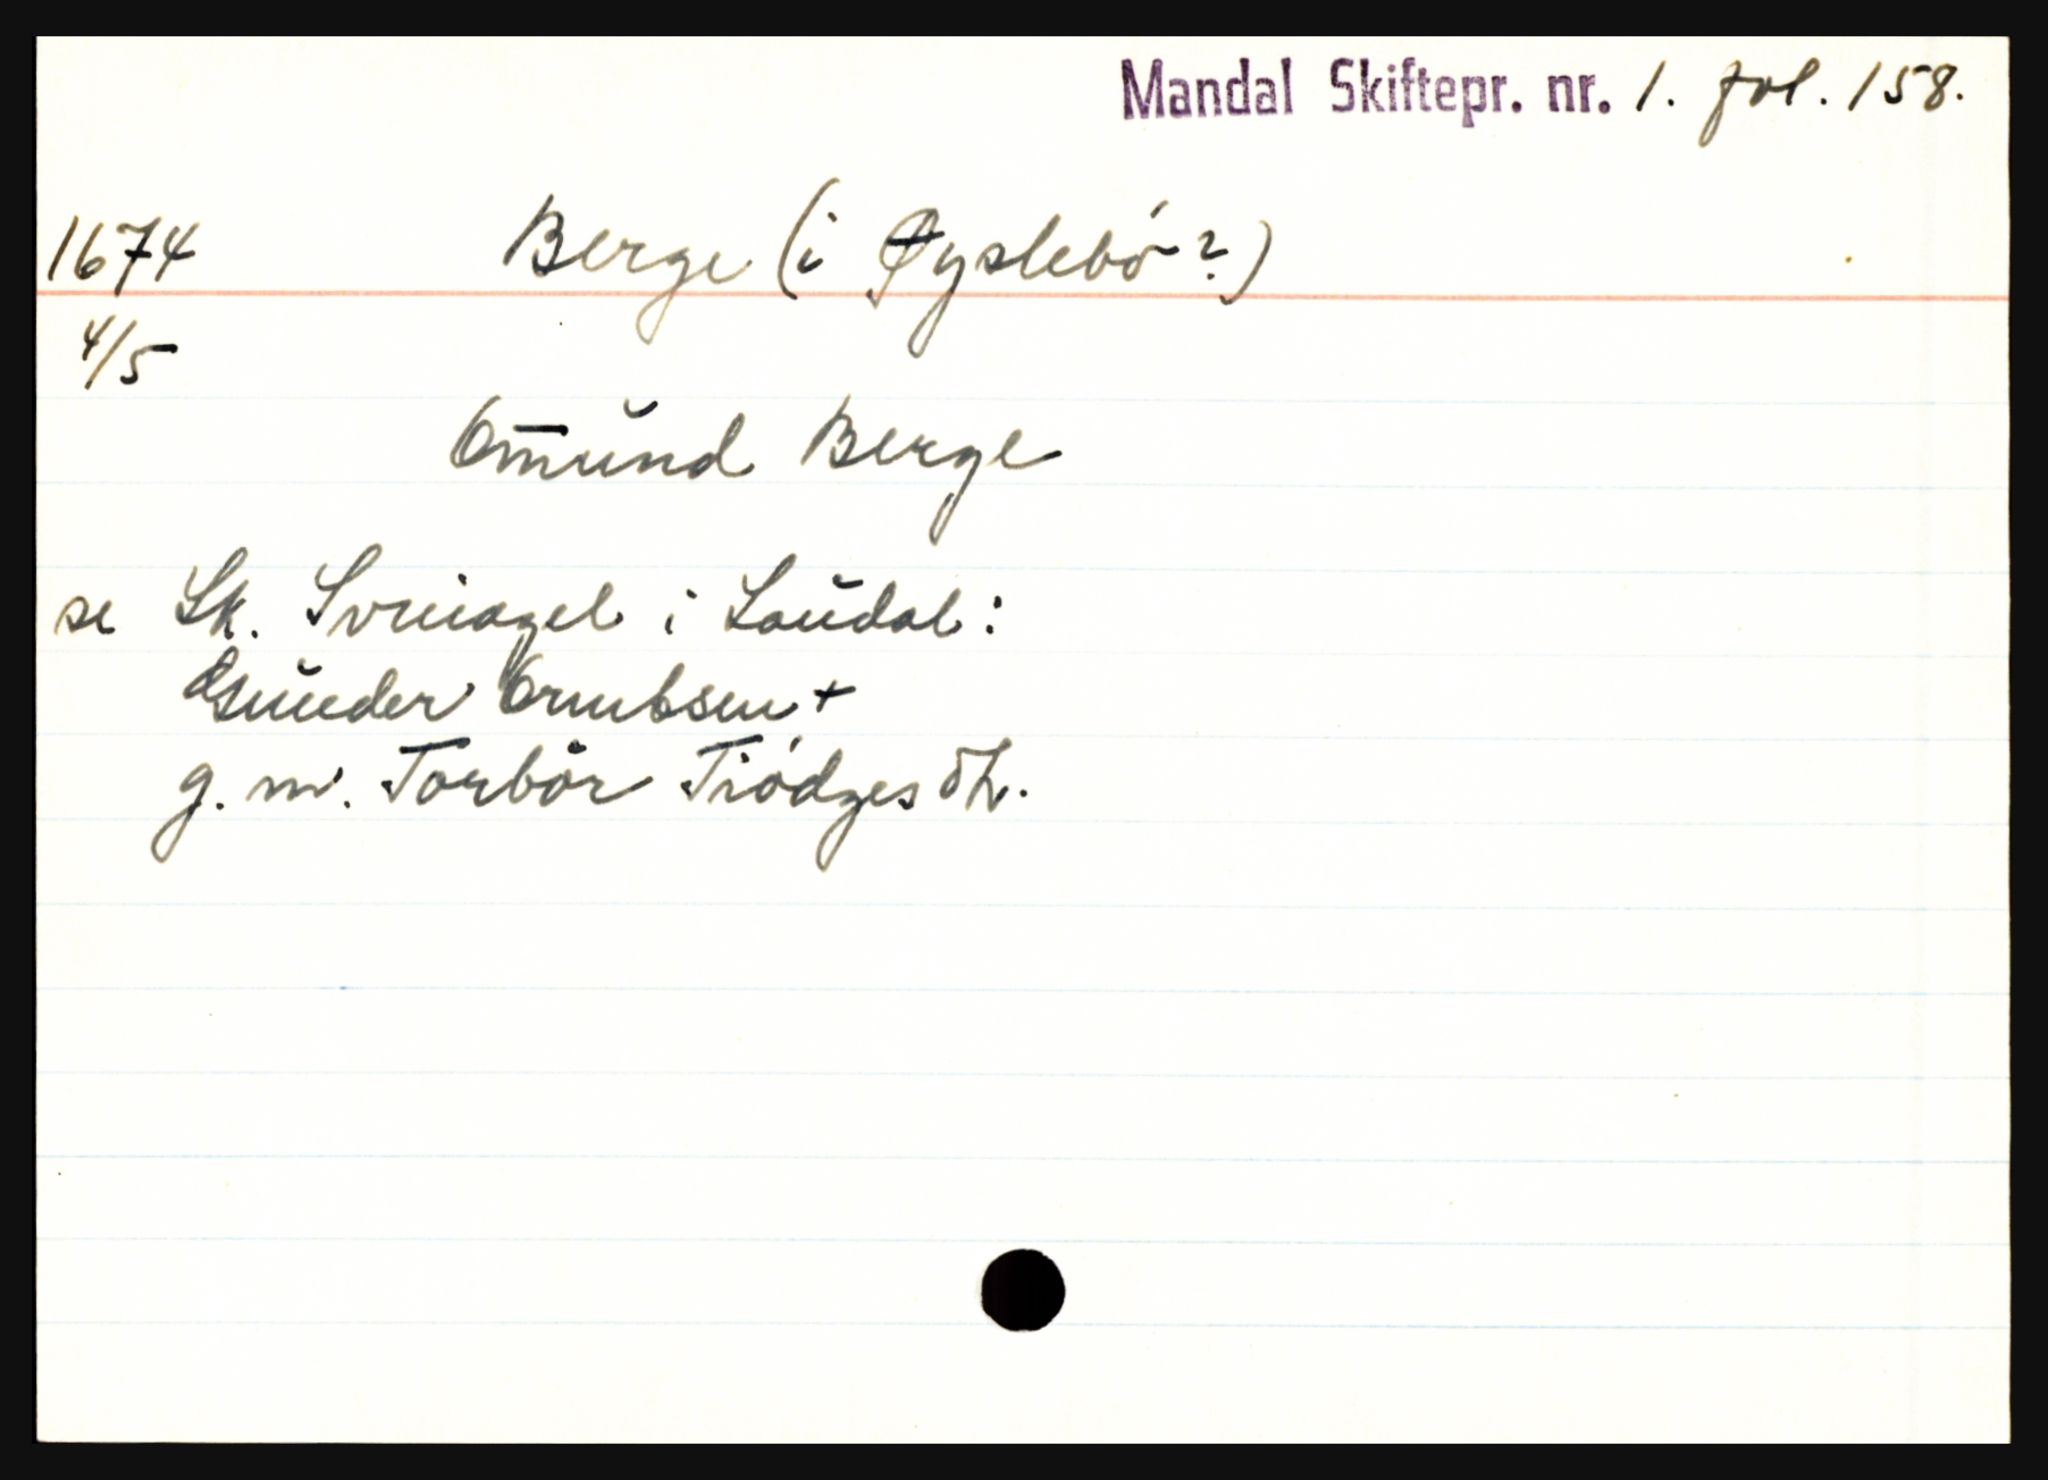 Mandal Skiftepr. nr. 1. fol. 158.
1674 Berge (i Øyslebø?)
4/5
Om̅und Berge
se Sk. Svinagel i Laudal:
Gunder Omutsen +
g. m. Torbør Tiødges dt.